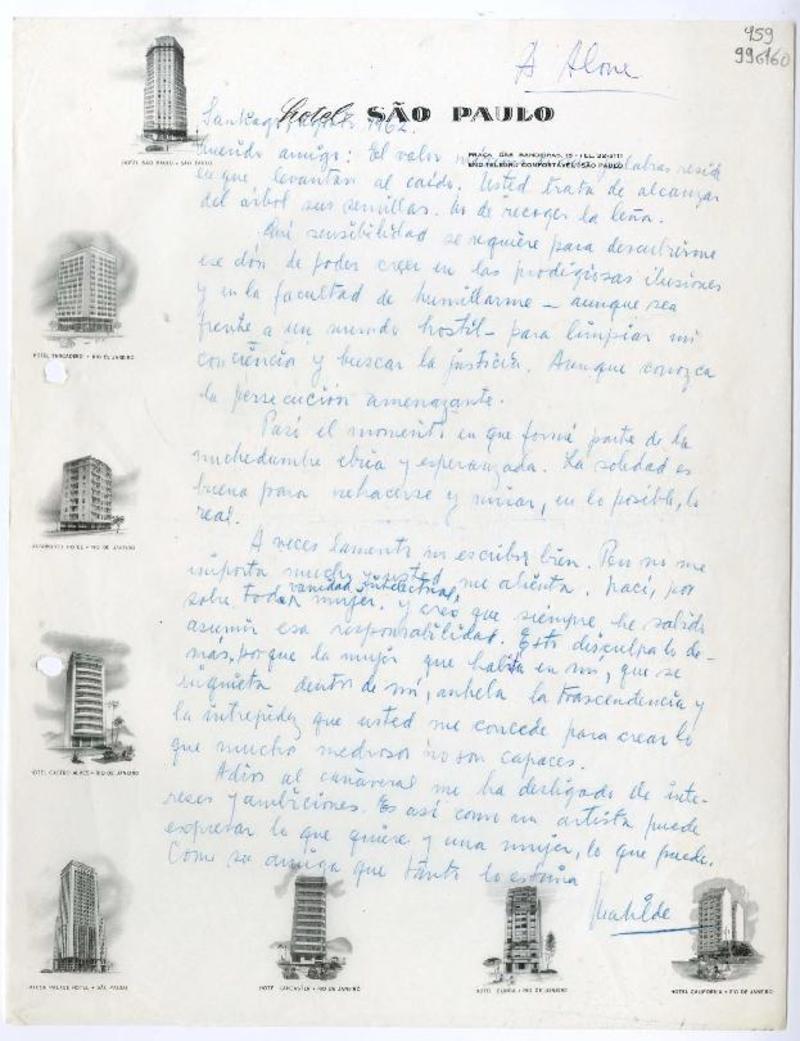 959
996160
A Alone
hotel SÃO PAULO
Santiago, agosto 1962.
PRAÇA DAS BANDEIRAS, 15 - TEL.
END. TELEGR.: CONFORTÁVEL - SÃO PAULO
HOTEL SÃO PAULO • SÃO PAULO
Querido amigo: El valor palabras reside
en que levantan al caído. Usted trata de alcanzar
del árbol sus semillas. No de recoger la leña.
Qué sensibilidad se requiere para descubrirme
ese dón de poder creer en las prodigiosas ilusiones
y en la facultad de humillarme - aunque sea
frente a un mundo hostil - para limpiar mi
conciencia y buscar la justicia. Aunque conozca
la persecución amenazante.
HOTEL CORCOVADO • RIO DE JANEIRO
Pasó el momento en que formé parte de la
muchedumbre ebria y esperanzada. La soledad es
buena para rehacerse y mirar, en lo posible, lo
real.
HOTEL • RIO DE JANEIRO
A veces lamento no escribir bien. Pero no me
importa mucho y usted me alienta. Nací, por
sobre toda vanidad intelectual, mujer. y creo que siempre he sabido
asumir esa responsabilidad. Esto disculpa lo de-
más, porque la mujer que habita en mí, que se
inquieta dentro de mí, anhela la trascendencia y
la intrepidez que usted me concede para crear lo
que mucho medrosos no son capaces.
HOTEL CASTRO ALVES • RIO DE JANEIRO
Adios al cañaveral me ha desligado de inte-
reses y ambiciones. Es así como un artista puede
expresar lo que quiere y una mujer, lo que puede.
Como su amiga que tanto lo estima
Matilde
PALACE HOTEL • SÃO PAULO
HOTEL LANCASTER • RIO DE JANEIRO
HOTEL • RIO DE JANEIRO
HOTEL CALIFORNIA • RIO DE JANEIRO